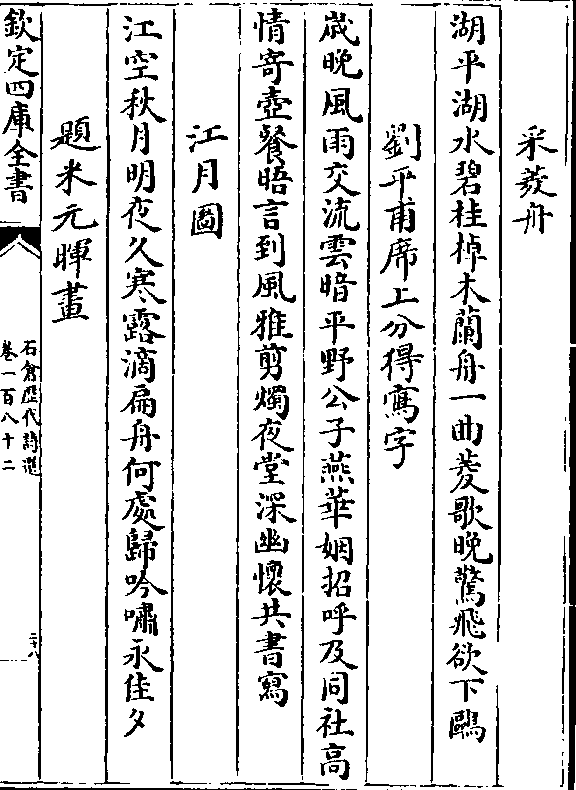 采菱舟
湖平湖水碧桂棹木蘭舟一曲菱歌晚驚飛欲下鷗
劉平甫席上分得寫字
歳晚風雨交流雲暗平野公子燕華姻招呼及同社高
情寄壺餐晤言到風雅剪燭夜堂深幽懷共書寫
江月圖
江空秋月明夜久寒露滴扁舟何處歸吟嘯永佳夕
題米元暉畫
欽定四庫全書
石倉歴代詩選
卷一百八十二
二十八